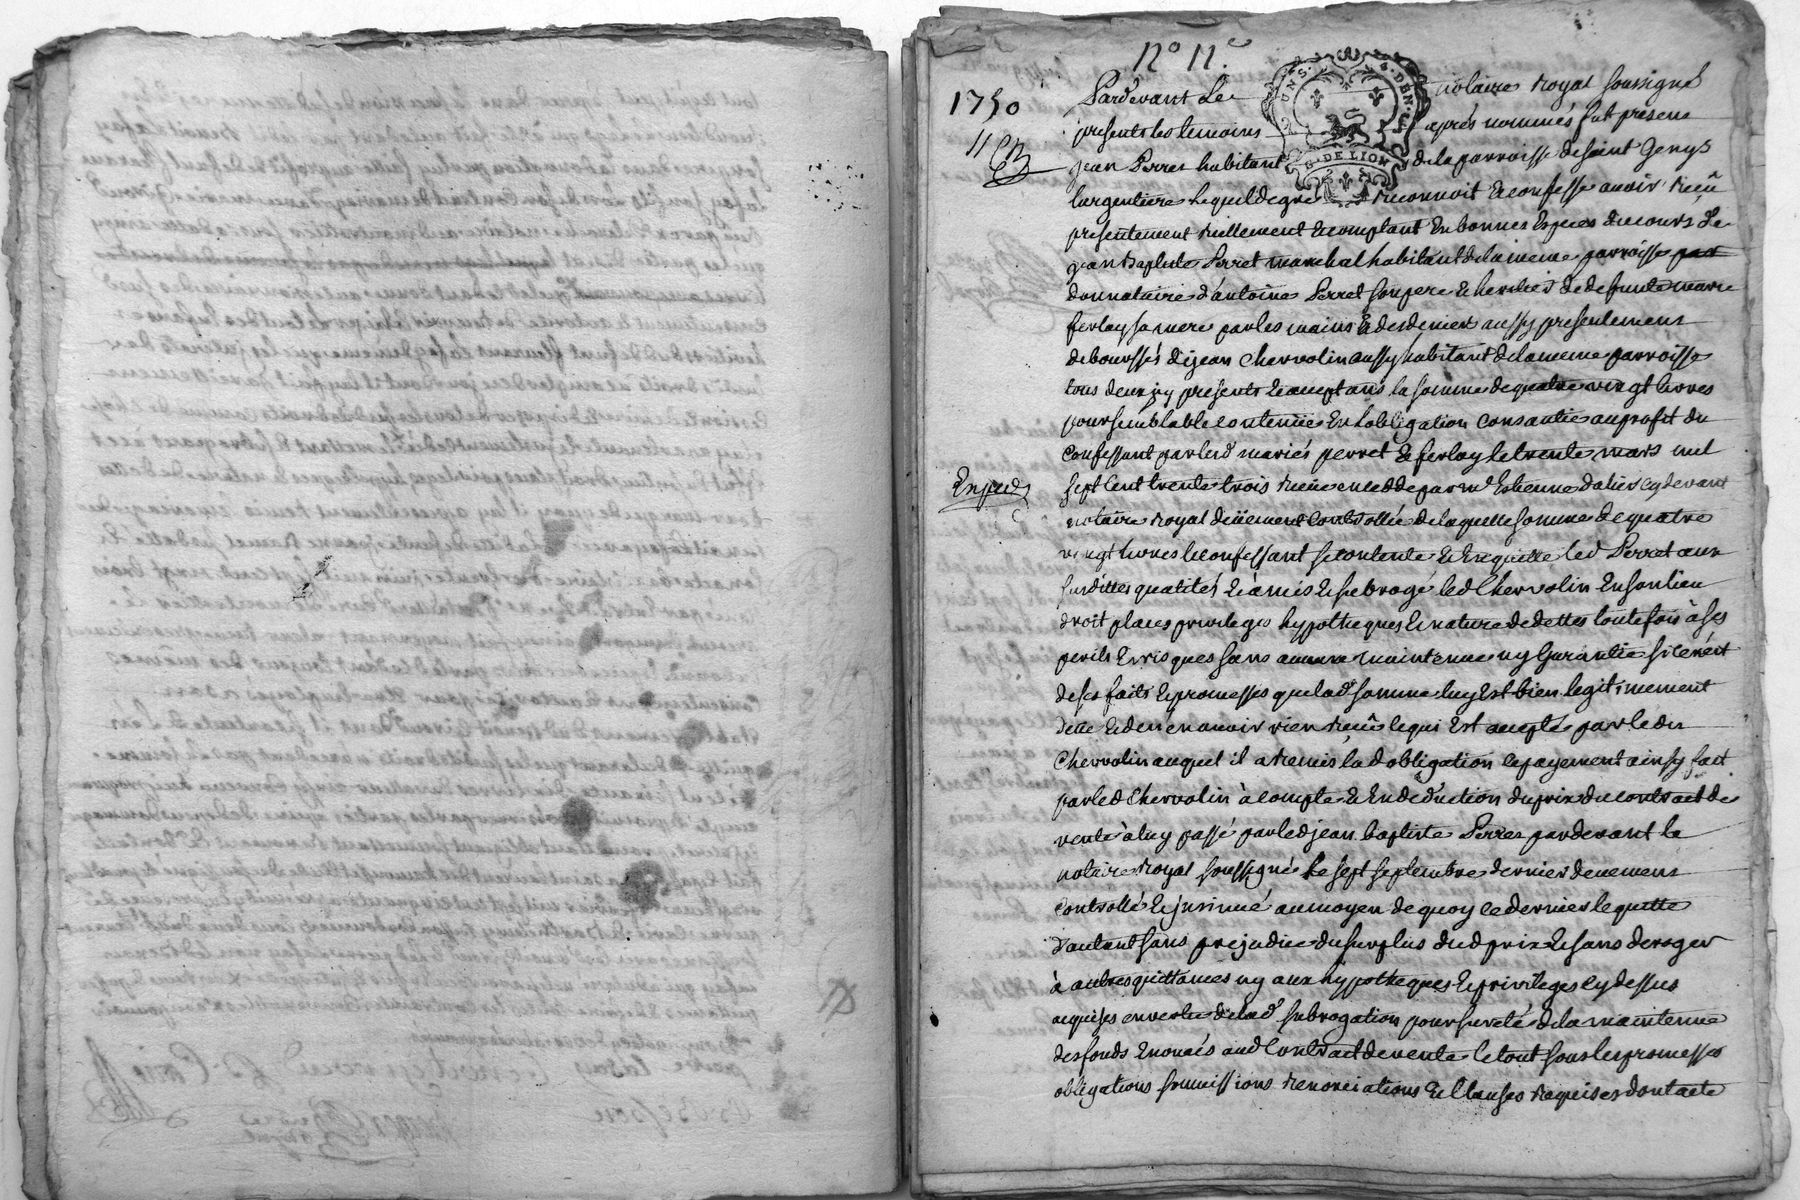 No 11e
1750
UN S. 8 DEN.
G. DE LION
Pardevant Le notaire Royal soussigné
presents les temoins après nommés fut present
jean Perret habitant de la parroisse de saint Genys
largentiere lequel de gré reconnoit & confesse avoir reçû
presentement réellement & comptant En bonnes Especes du cours de
jean Baptiste Perret marchal habitant de la meme parroisse
donnataire d'antoine Perret son pere & heritier de defunte marie
ferlay sa mere par les mains & des deniers aussy presentement
deboursés de jean Chervolin aussy habitant de la meme parroisse
tous deux jcy presents & acceptans la somme de quatre vingt livres
pour semblable contenüe En l'obligation consantie au profit du
confessant par lesd mariés perret & ferlay le trente mars mil
Exped
sept Cent trente trois reçue et de par me Estienne dalier cy devant
notaire royal deüement Controllée de laquelle somme de quatre
vingt livres le confessant se contente & En quitte led Perret aux
susdittes qualités & a mis & subrogé led Chervolin En son lieu
droit places privileges hypotheques & nature de dettes toutefois à ses
perils & risques sans aucune maintenue ny Garantie si ce n'est
de ses faits & promesses que lad somme luy Est bien legitimement
deüe & den en avoir rien reçû ce qui Est accepté par led
Chervolin auquel il a remis lad obligation ce payement ainsy fait
par led Chervolin à compte & En deduction du prix du contract de
vente à luy passé par led jean baptiste Perret pardevant le
notaire Royal soussigné le sept septembre dernier deuement
Controllé & jnsinué au moyen de quoy ce dernier le quitte
d'autant sans prejudice du surplus dud prix & sans deroger
à autres quittances ny aux hypotheques & privileges cy dessus
acquises en vertu de lad subrogation pour sureté de la maintenue
des fonds Enoncés aud Contract de vente le tout sous les promesses
obligations soumissions renonciations & Clauses requises dont acte